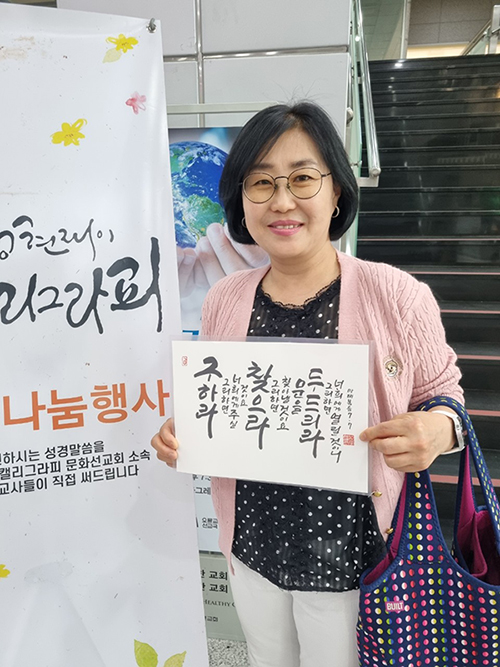 리그라피
나눔행사
하시는 성경말씀을
캘리그라피 문화선교회 소속
교사들이 직접 써드립니다
구하라
그리하면
너희에게 주실
것이요
찾으라
그리하면
찾아낼것이요
문을
두드리라
그리하면
너희에게 열릴것이니
교회
교회
HEALTHY
QUILT